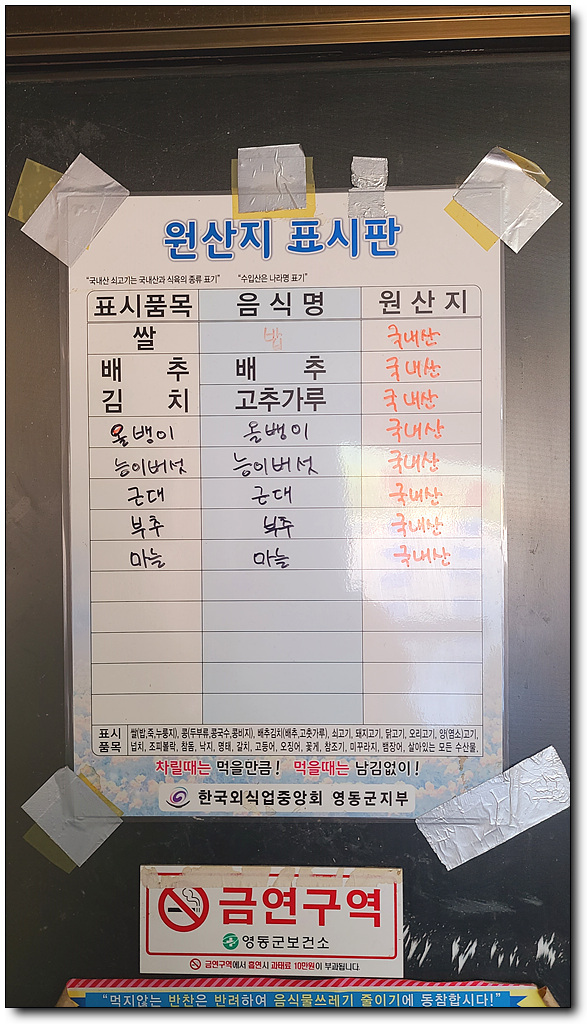 원산지 표시판
"국내산 쇠고기는 국내산과 식육의 종류 표기" "수입산은 나라명 표기"
표시품목 음식명 원산지
쌀 밥 국내산
배추 배추 국내산
김치 고추가루 국내산
올뱅이 올뱅이 국내산
능이버섯 능이버섯 국내산
근대 근대 국내산
부추 부추 국내산
마늘 마늘 국내산
표시 쌀(밥,죽,누룽지), 콩(두부류,콩국수,콩비지), 배추김치(배추,고춧가루), 쇠고기, 돼지고기, 닭고기, 오리고기, 양(염소)고기,
품목 넙치, 조피볼락, 참돔, 낙지, 명태, 갈치, 고등어, 오징어, 꽃게, 참조기, 미꾸라지, 뱀장어, 살아있는 모든 수산물.
차릴때는 먹을만큼! 먹을때는 남김없이!
한국외식업중앙회 영동군지부
금연구역
영동군보건소
금연구역에서 흡연시 과태료 10만원이 부과됩니다.
"먹지않는 반찬은 반려하여 음식물쓰레기 줄이기에 동참합시다!"